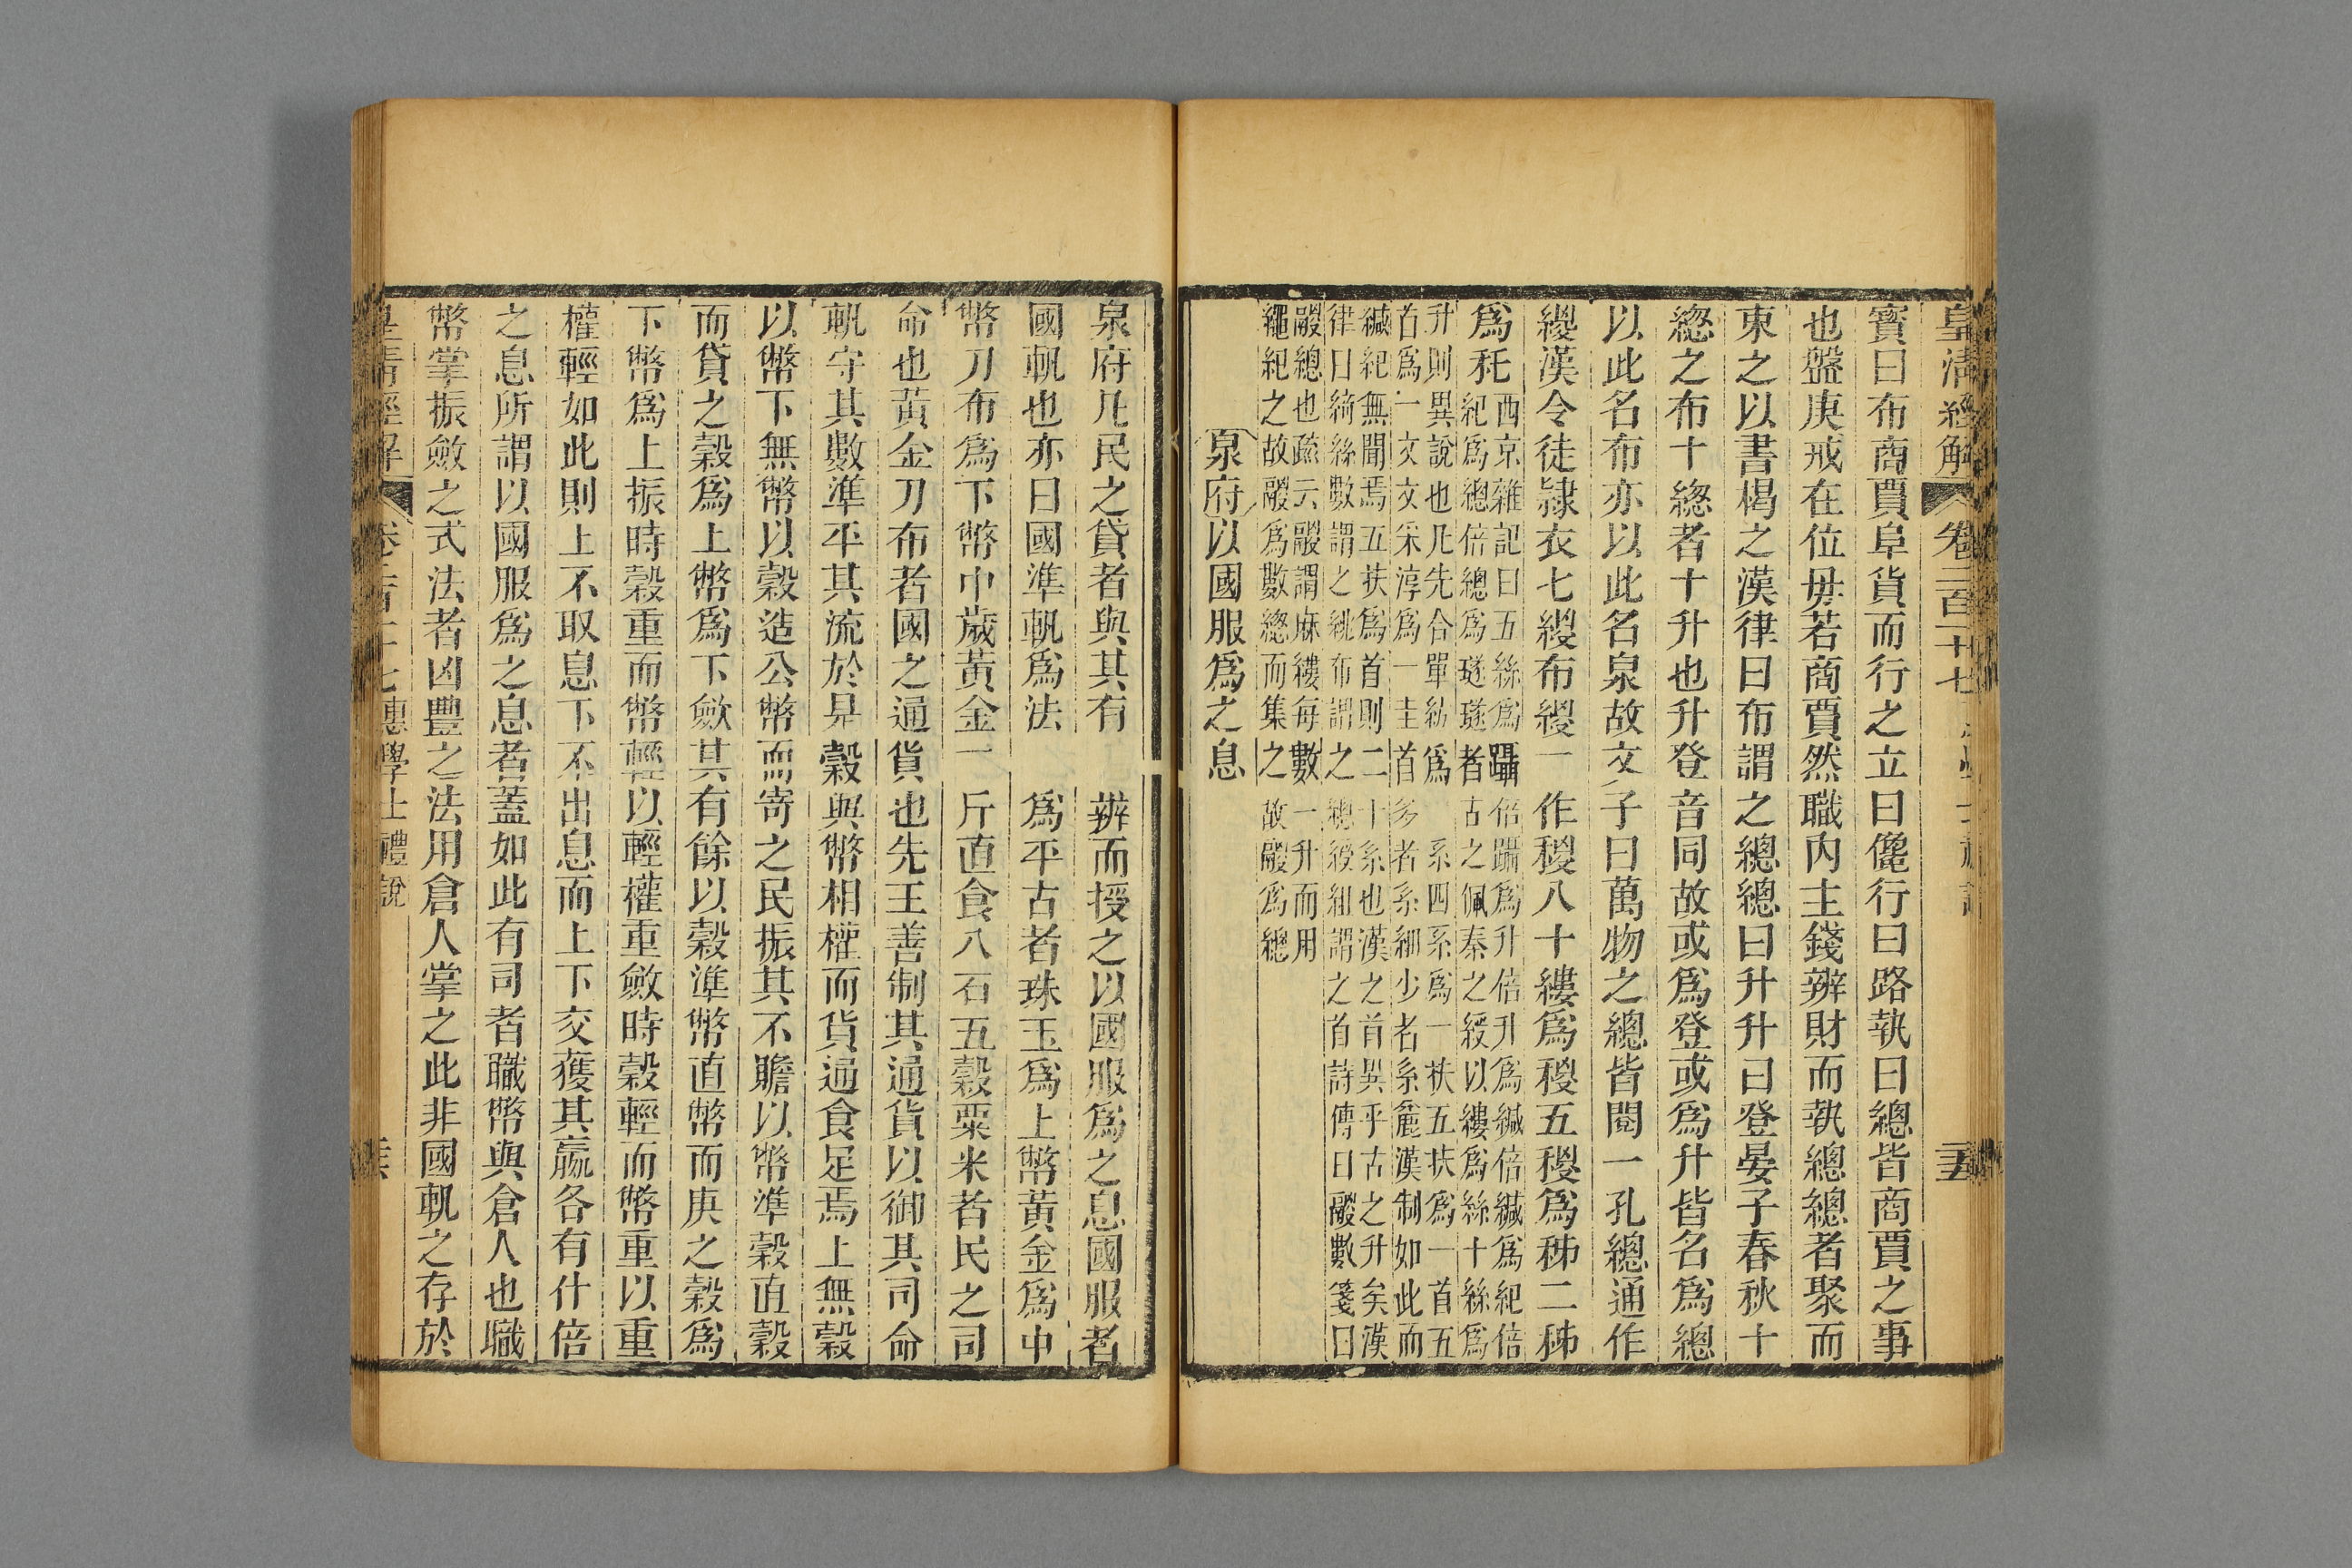 皇清經解 卷二百二十七
寳曰布商賈阜貨而行之立曰儳行曰路執曰總皆商賈之事
也盤庚戒在位毋若商賈然職内主錢辨財而執總總者聚而
東之以書楬之漢律曰布謂之總總曰升升曰登晏子春秋十
緫之布十緫者十升也升登音同故或爲登或爲升皆名爲總
以此名布亦以此名泉故文子曰萬物之總皆閱一孔總通作
緵漢令徒隸衣七緵布緵一作稯八十縷爲稯五稯爲秭二秭
爲秅
西京雜記曰五絲爲䌰倍䌰爲升倍升爲緎倍緎爲紀倍
紀爲緫倍總爲襚襚者古之佩秦之綬以縷爲絲十絲爲
升則異說也凡先合單紡爲一系四系爲一扶五扶爲一首五
首爲一文文采淳爲一圭首多者系細少者系麄漢制如此而
緎紀無聞焉五扶爲首則二十系也漢之首異乎古之升矣漢
律曰綺絲數謂之絩布謂之總綬組謂之首詩傳曰鬷數箋曰
鬷總也疏云鬷謂麻縷每數一升而用
繩紀之故鬷爲數緫而集之故鬷爲總
泉府以國服爲之息
泉府凡民之貸者與其有辨而授之以國服爲之息國服者
國軌也亦曰國準軌爲法爲平古者珠玉爲上幣黃金爲中
幣刀布爲下幣中歲黃金一斤直食八石五穀粟米者民之司
命也黃金刀布者國之通貨也先王善制其通貨以御其司命
軌守其數準平其流於是穀與幣相權而貨通食足焉上無穀
以幣下無幣以穀造公幣而寄之民振其不贍以幣準穀直穀
而貸之穀爲上幣爲下斂其有餘以穀準幣直幣而庚之穀爲
下幣爲上振時穀重而幣輕以輕權重斂時穀輕而幣重以重
權輕如此則上不取息下不出息而上下交獲其贏各有什倍
之息所謂以國服爲之息者蓋如此有司者職幣與倉人也職
幣掌振斂之式法者凶豐之法用倉人掌之此非國軌之存於
皇清經解 卷二百二十七 惠學士禮說